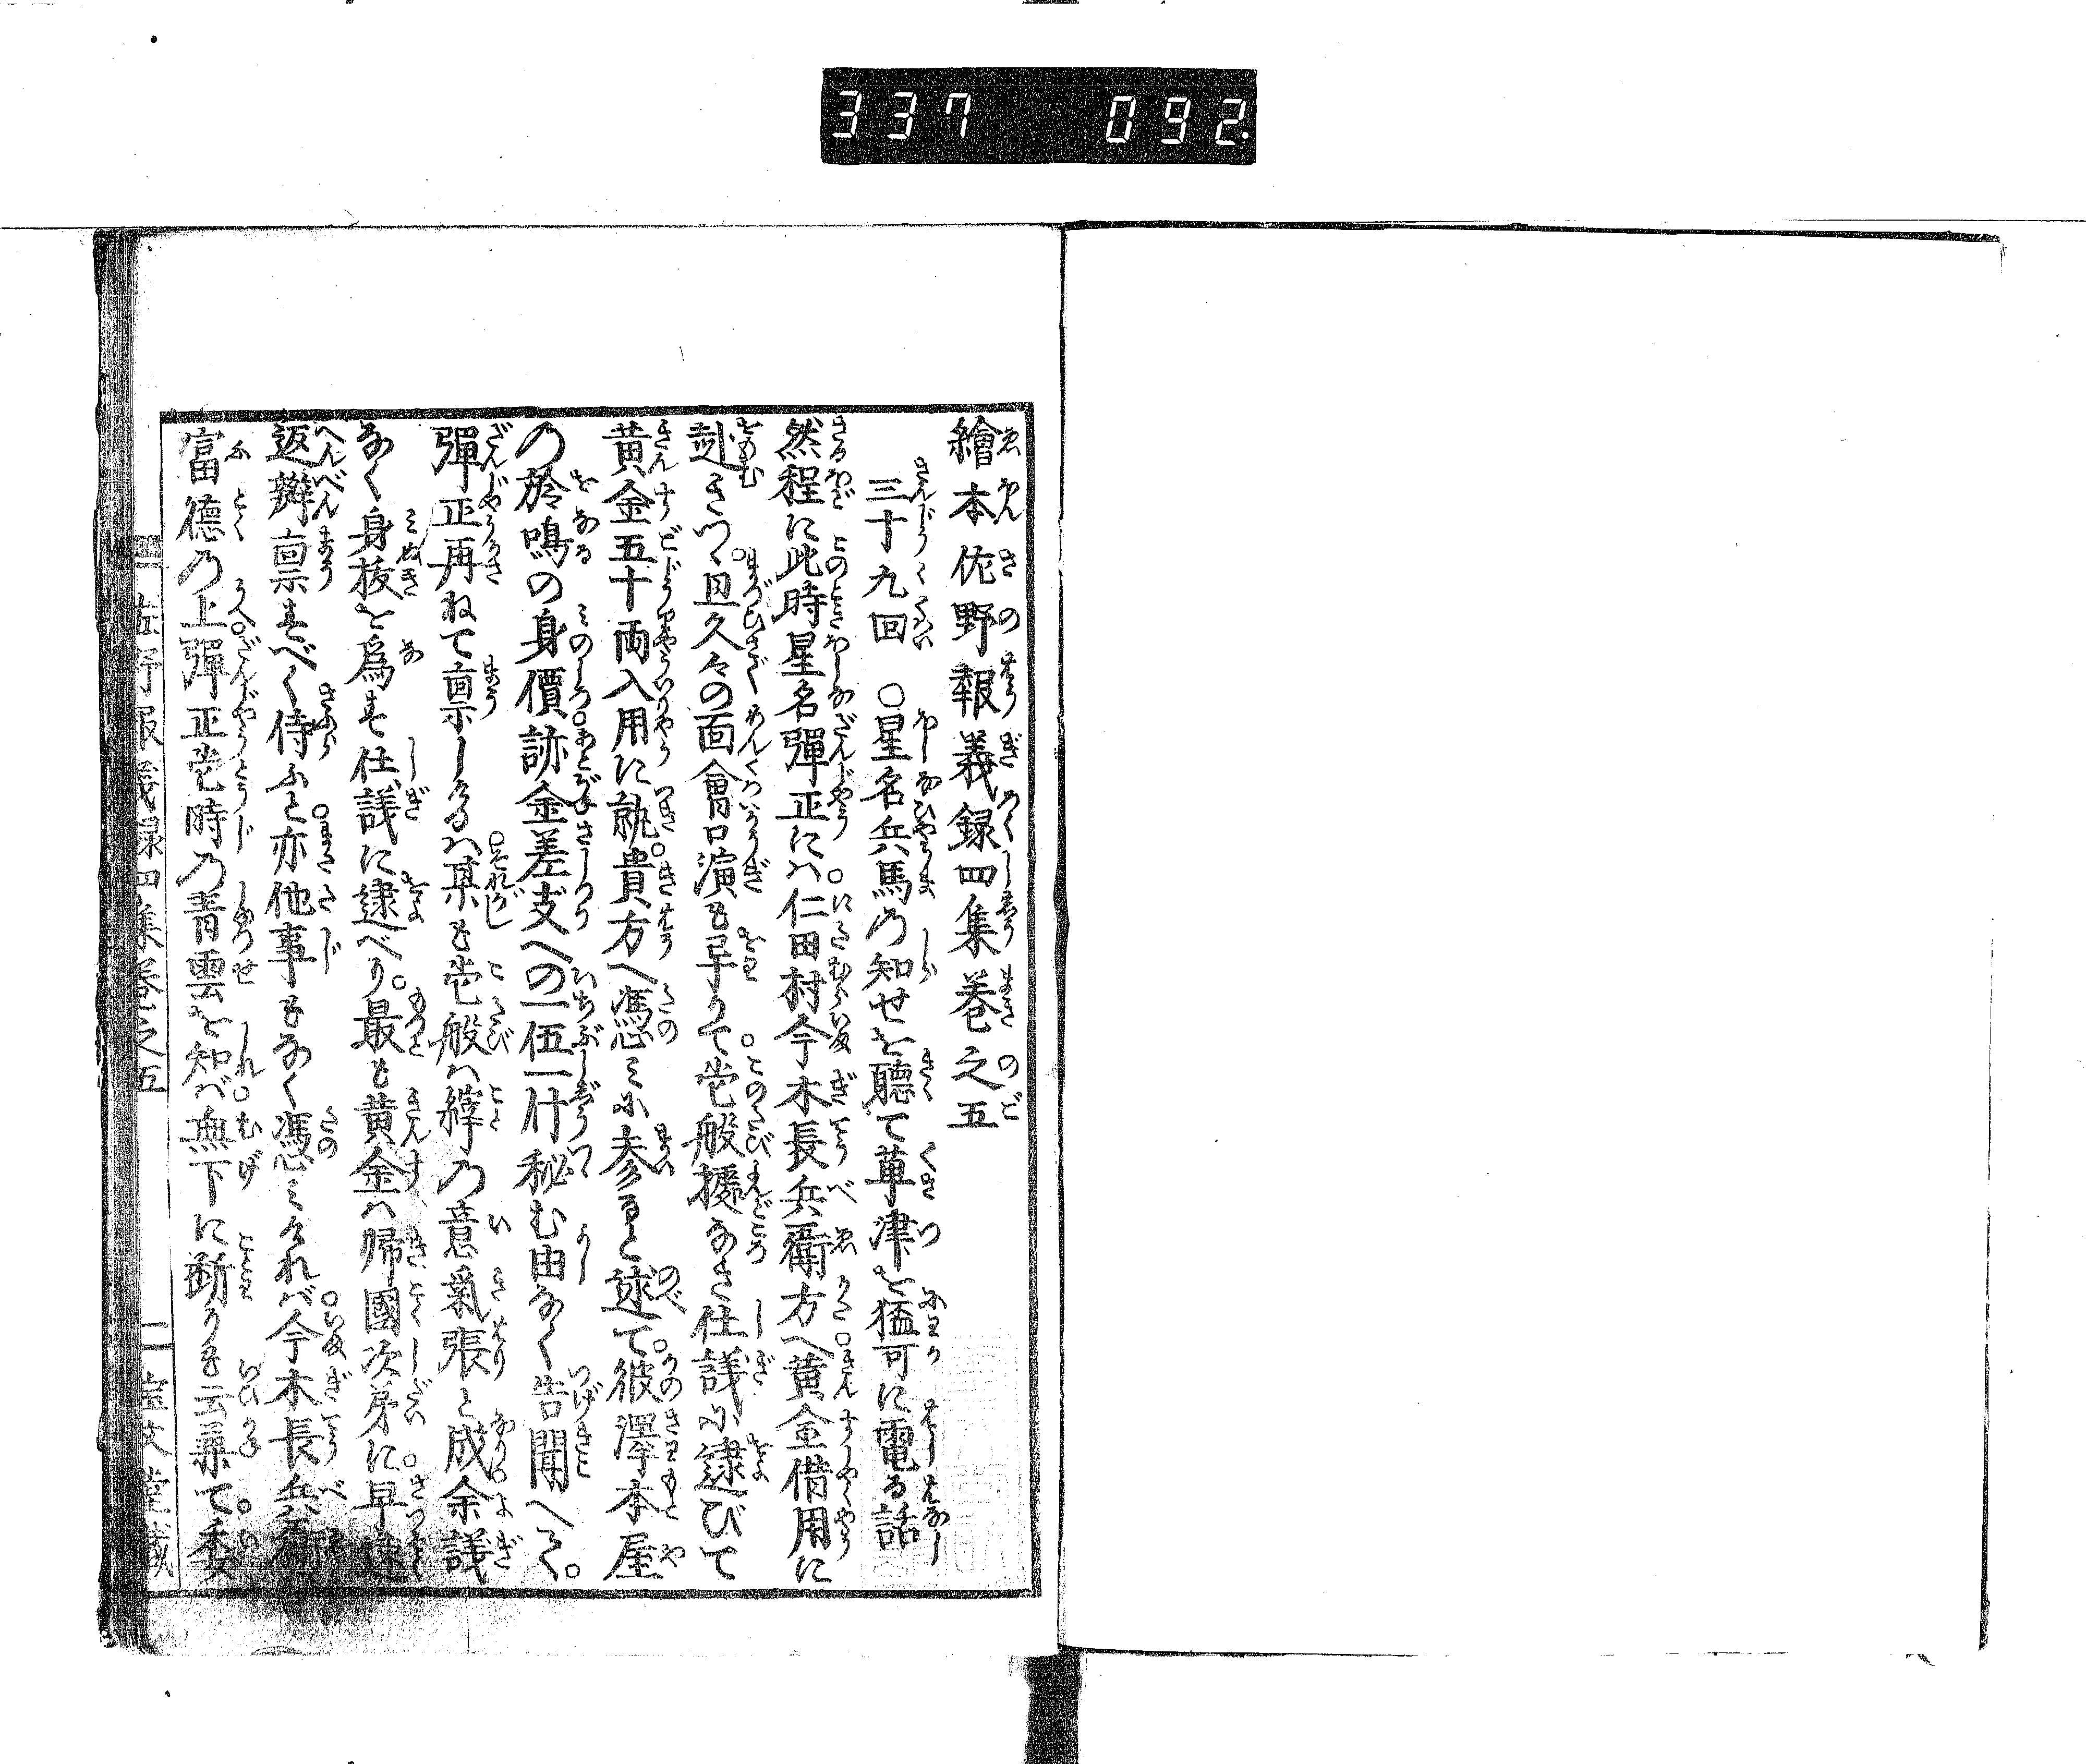 337 092
繪本佐野報義録四集巻之五
三十九回 ○星名兵馬の知せを聽て草津を猛可に電る話
然程に此時星名彈正にハ仁田村今木長兵衛方へ黄金借用に
赴きつゝ。且久々の面會口演も早りて壱般據なき仕議に逮びて
黄金五十両入用に就。貴方へ馮ミに参ると述て彼澤本屋
の於鳴の身價跡金差支への一伍一什秘む由なく告聞へく。
彈正再ねて禀しけるハ某も壱般ハ縡の意氣張と成余議
なく身抜を爲す仕議に逮べり。最も黄金ハ帰國次第に早速
返辨禀すべく侍ふを亦他事もなく馮ミけれバ今木長兵衛
富徳の上彈正壱時の青雲を知バ無下に断りも云兼て委
佐野報義録四集巻之五 二 宝文堂蔵